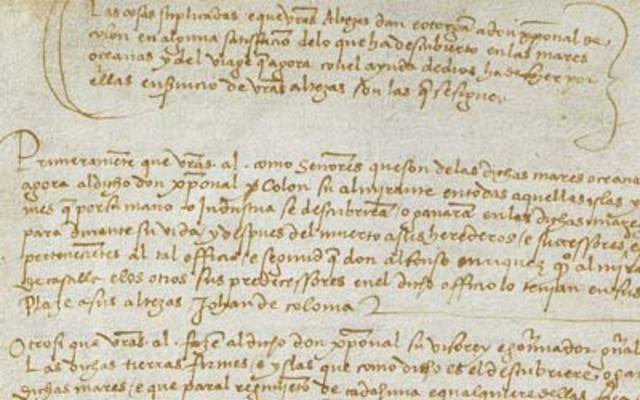 Las cosas suplicadas e que vras Altezas dan e otorgan a don xpoual de
colon en alguna satisfacio delo que ha descubierto en las mares
oceanas y del viage q agora con el ayuda de dios ha de fazer por
ellas en seruicio de vras altezas son las q se siguen
Primeramete que vras al. como Senores que son delas dichas mares oceanas
agora al dicho don xpoual Colon su almirante en todas aquellas islas y
mes q por su mano o industria se descubrira o ganara en las dichas mares
para durante su vida y despues del muerto a sus herederos e successores
pertenecietes al tal officio e segund q don alfonso enriquez almir
de castilla e los otros sus predecessores en el dicho officio lo tenian en sus
Plaze a sus altezas Johan de coloma
Otrosi que vras al. faze al dicho don xpoual su visorey e gouernador
Las dichas tierras firmes e yslas que como dicho es el descubriere o
dichas mares e que paral regimieto de cada huna e qualquiere dellas